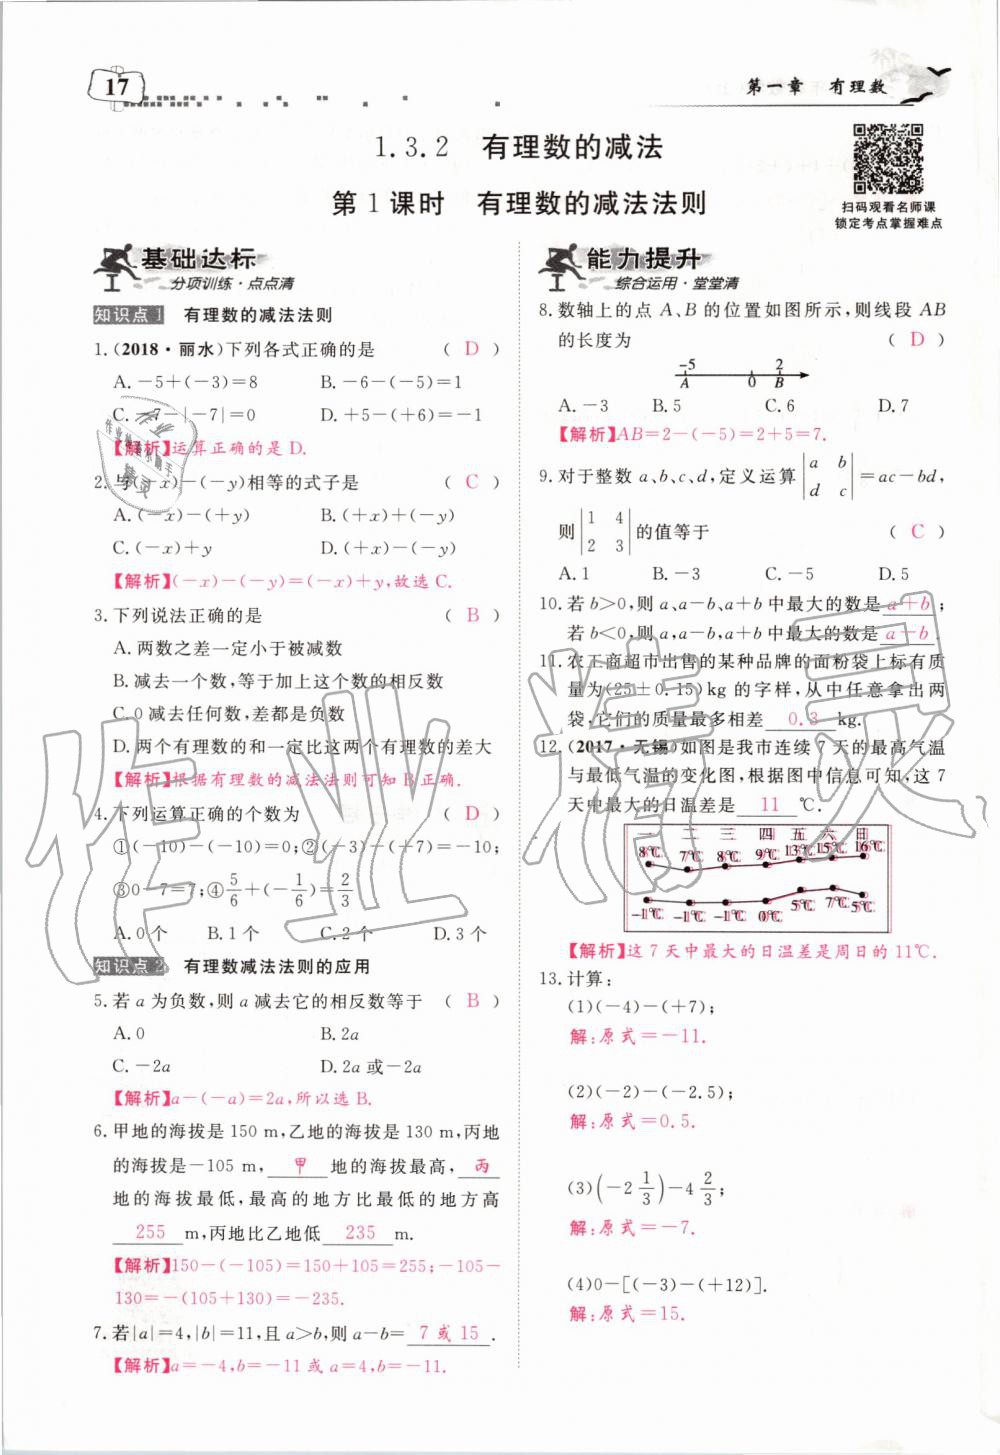 17
第一章 有理数
1.3.2 有理数的减法
第1课时 有理数的减法法则
扫码观看名师课
锁定考点掌握难点
基础达标
分项训练·点点清
知识点1 有理数的减法法则
1.(2018·丽水)下列各式正确的是 ( D )
A.－5＋(－3)＝8 B.－6－(－5)＝1
C.－7－|－7|＝0 D.＋5－(＋6)＝－1
【解析】运算正确的是 D.
2.与(－x)－(－y)相等的式子是 ( C )
A.(－x)－(＋y) B.(＋x)＋(－y)
C.(－x)＋y D.(＋x)－(－y)
【解析】(－x)－(－y)＝(－x)＋y,故选 C.
3.下列说法正确的是 ( B )
A.两数之差一定小于被减数
B.减去一个数,等于加上这个数的相反数
C.0减去任何数,差都是负数
D.两个有理数的和一定比这两个有理数的差大
【解析】根据有理数的减法法则可知 B 正确.
4.下列运算正确的个数为 ( D )
①(－10)－(－10)＝0;②(－3)－(＋7)＝－10;
③0－7＝7;④5/6＋(－1/6)＝2/3
A.0个 B.1个 C.2个 D.3个
知识点2 有理数减法法则的应用
5.若a为负数,则a减去它的相反数等于 ( B )
A.0 B.2a
C.－2a D.2a或－2a
【解析】a－(－a)＝2a,所以选 B.
6.甲地的海拔是150 m,乙地的海拔是130 m,丙地
的海拔是－105 m, 甲 地的海拔最高, 丙
地的海拔最低,最高的地方比最低的地方高
255 m,丙地比乙地低 235 m.
【解析】150－(－105)＝150＋105＝255;－105－
130＝－(105＋130)＝－235.
7.若|a|＝4,|b|＝11,且a>b,则a－b＝ 7或15 .
【解析】a＝－4,b＝－11或a＝4,b＝－11.
能力提升
综合运用·堂堂清
8.数轴上的点A、B的位置如图所示,则线段AB
的长度为 ( D )
－5 2
A 0 B
A.－3 B.5 C.6 D.7
【解析】AB＝2－(－5)＝2＋5＝7.
9.对于整数a、b、c、d,定义运算|a b|＝ac－bd,
|d c|
则|1 4|的值等于 ( C )
|2 3|
A.1 B.－3 C.－5 D.5
10.若b>0,则a、a－b、a＋b中最大的数是 a＋b ;
若b<0,则a,a－b,a＋b中最大的数是 a－b .
11.农工商超市出售的某种品牌的面粉袋上标有质
量为(25±0.15)kg的字样,从中任意拿出两
袋,它们的质量最多相差 0.3 kg.
12.(2017·无锡)如图是我市连续7天的最高气温
与最低气温的变化图,根据图中信息可知,这7
天中最大的日温差是 11 ℃.
一 二 三 四 五 六 日
8℃ 7℃ 8℃ 9℃ 13℃ 15℃ 16℃
－1℃ －1℃ －1℃ 0℃ 5℃ 7℃ 5℃
【解析】这7天中最大的日温差是周日的11℃.
13.计算:
(1)(－4)－(＋7);
解:原式＝－11.
(2)(－2)－(－2.5);
解:原式＝0.5.
(3)(－2 1/3)－4 2/3;
解:原式＝－7.
(4)0－[(－3)－(＋12)].
解:原式＝15.
作业精灵